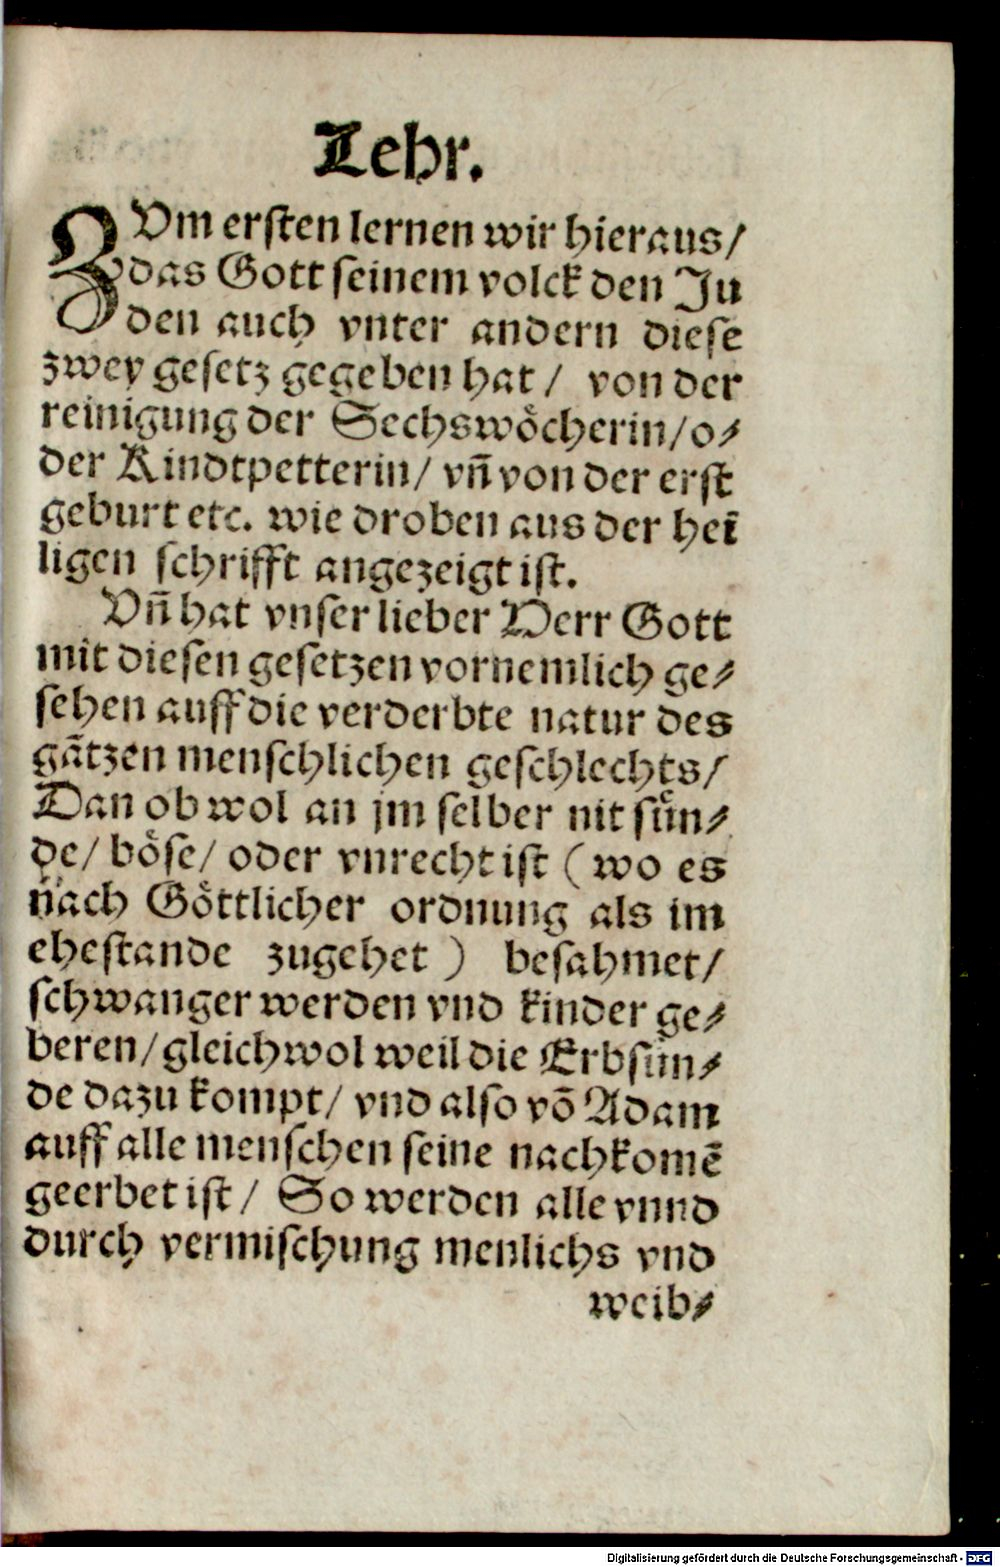 Lehr.
ZVm ersten lernen wir hieraus/
das Gott seinem volck den Ju
den auch vnter andern diese
zwey gesetz gegeben hat / von der
reinigung der Sechswoͤcherin/o⸗
der Kindtpetterin/ vñ von der erst
geburt etc. wie droben aus der hei
ligen schrifft angezeigt ist.
Vñ hat vnser lieber Herr Gott
mit diesen gesetzen vornemlich ge⸗
sehen auff die verderbte natur des
gãtzen menschlichen geschlechts/
Dan ob wol an jm selber nit suͤn⸗
de/ boͤse/ oder vnrecht ist (wo es
nach Goͤttlicher ordnung als im
ehestande zugehet) besahmet/
schwanger werden vnd kinder ge⸗
beren/gleichwol weil die Erbsuͤn⸗
de dazu kompt/ vnd also võ Adam
auff alle menschen seine nachkomẽ
geerbet ist/ So werden alle vnnd
durch vermischung menlichs vnd
weib⸗
Digitalisierung gefördert durch die Deutsche Forschungsgemeinschaft - DFG